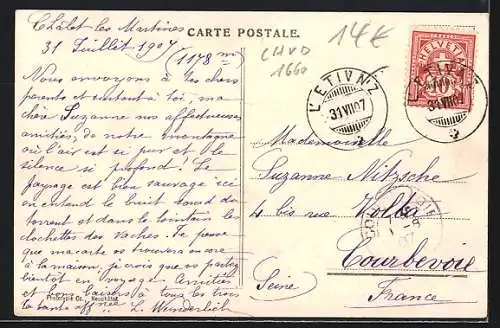 Châlet les Martines
31 Juillet 1907
(1178 m)
CARTE POSTALE.
CHVD
1660
14€
HELVETIA
L'ETIVAZ
31 VII 07
L'ETIVAZ
31 VII 07
Nous envoyons à tes chers
parents et surtout à toi, ma
chère Suzanne nos affectueuses
amitiés, de notre montagne
où l'air est si pur et le
silence si profond! Le
paysage est bien sauvage ici
on entend le bruit sourd du
torrent et dans le lointain les
clochettes des vaches. Je pense
que ma carte vs trouvera encore
à la maison, je crois que vs partez
bientôt en voyage. Amitiés
et bons baisers à tous les trois
L. Wunderlich
Phototypie Co., Neuchâtel
Mademoiselle
Suzanne Nitzsche
4 bis rue Volta
Courbevoie
(Seine)
France